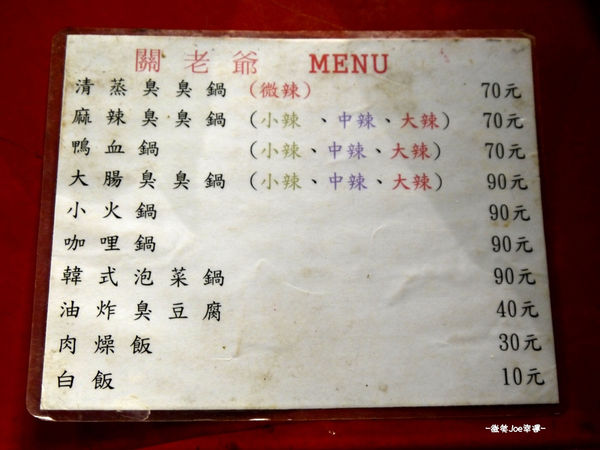 關老爺 MENU
清蒸臭臭鍋 (微辣) 70元
麻辣臭臭鍋 (小辣、中辣、大辣) 70元
鴨血鍋 (小辣、中辣、大辣) 70元
大腸臭臭鍋 (小辣、中辣、大辣) 90元
小火鍋 90元
咖哩鍋 90元
韓式泡菜鍋 90元
油炸臭豆腐 40元
肉燥飯 30元
白飯 10元